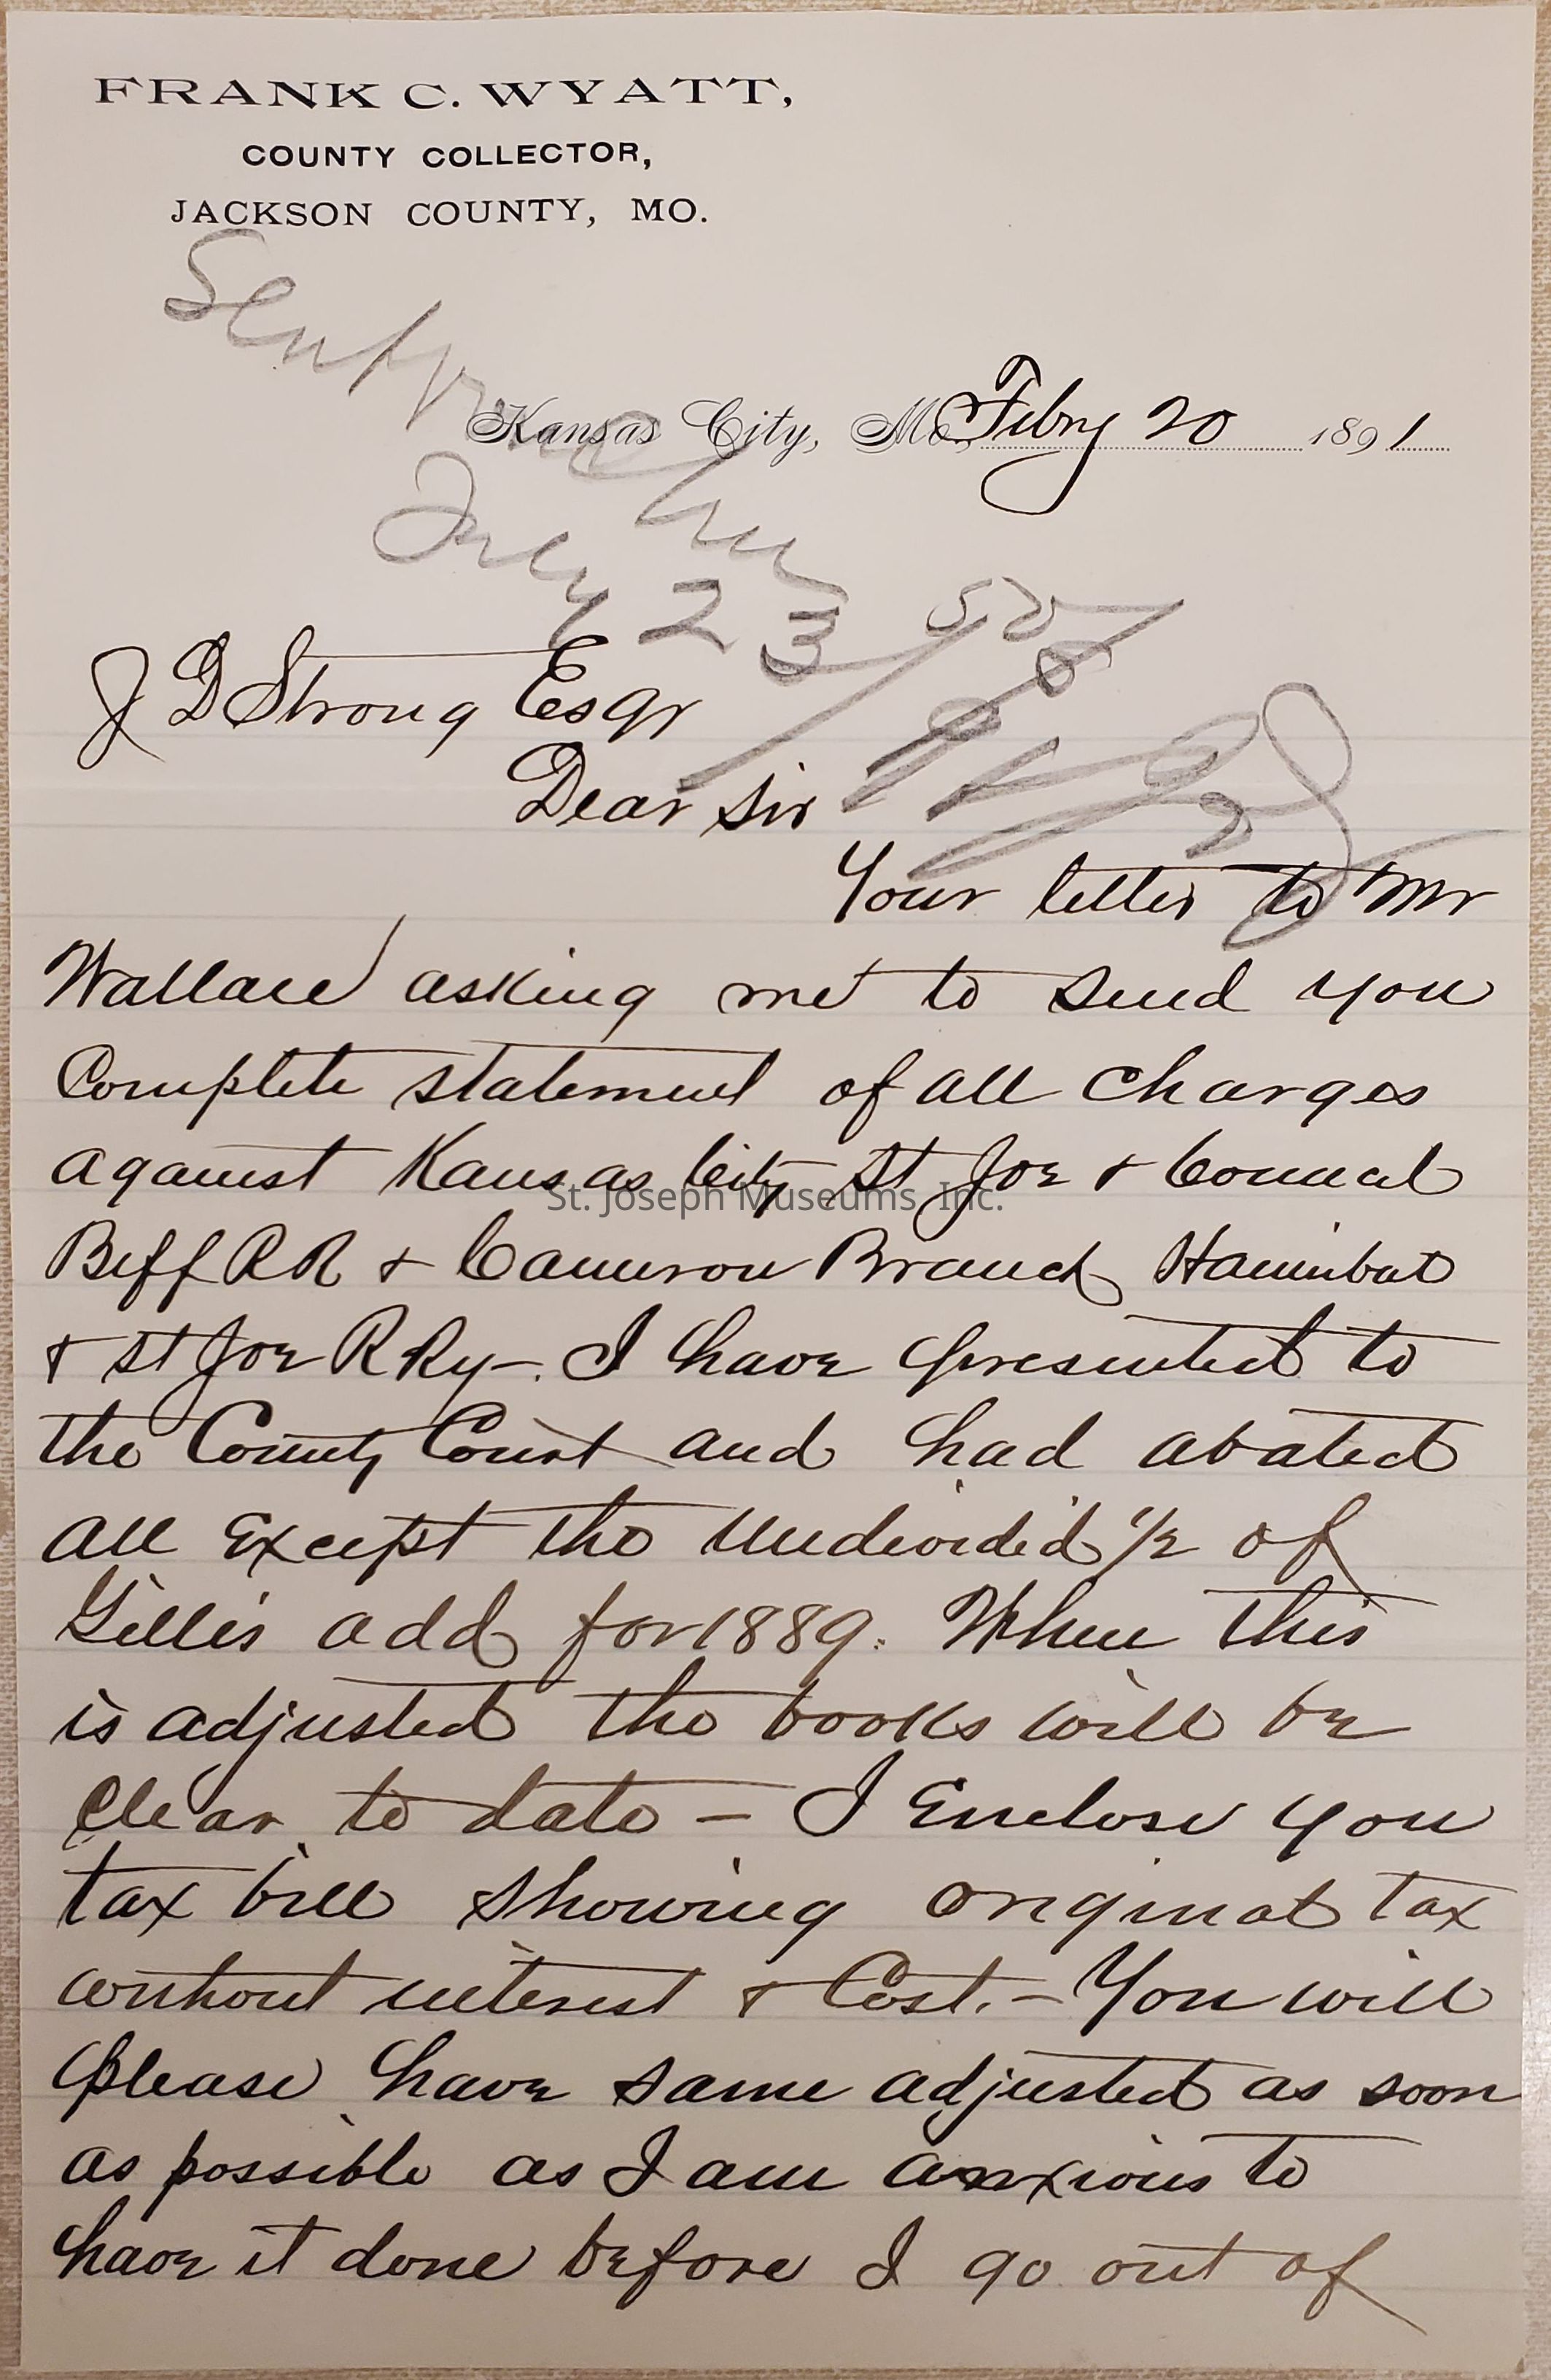 FRANK C. WYATT,
COUNTY COLLECTOR,
JACKSON COUNTY, MO.
Kansas City, Mo., Febry 20 1891
July 23
J D Strong Esqr
Dear Sir
Your letter to Mr
Wallace asking me to send you
Complete statement of all charges
against Kansas City St Joe & Counal
St. Joseph Museums, Inc.
Bluff RR & Cameron Branch Hannibal
& St Joe R Ry-. I have presented to
the County Court and had abated
all Except the Undivided 1/2 of
Gillis add for 1889. When this
is adjusted the books will be
Clear to date - I Enclose you
tax bill showing original tax
without interest & Cost. - You will
please have same adjusted as soon
as possible as I am anxious to
have it done before I go out of